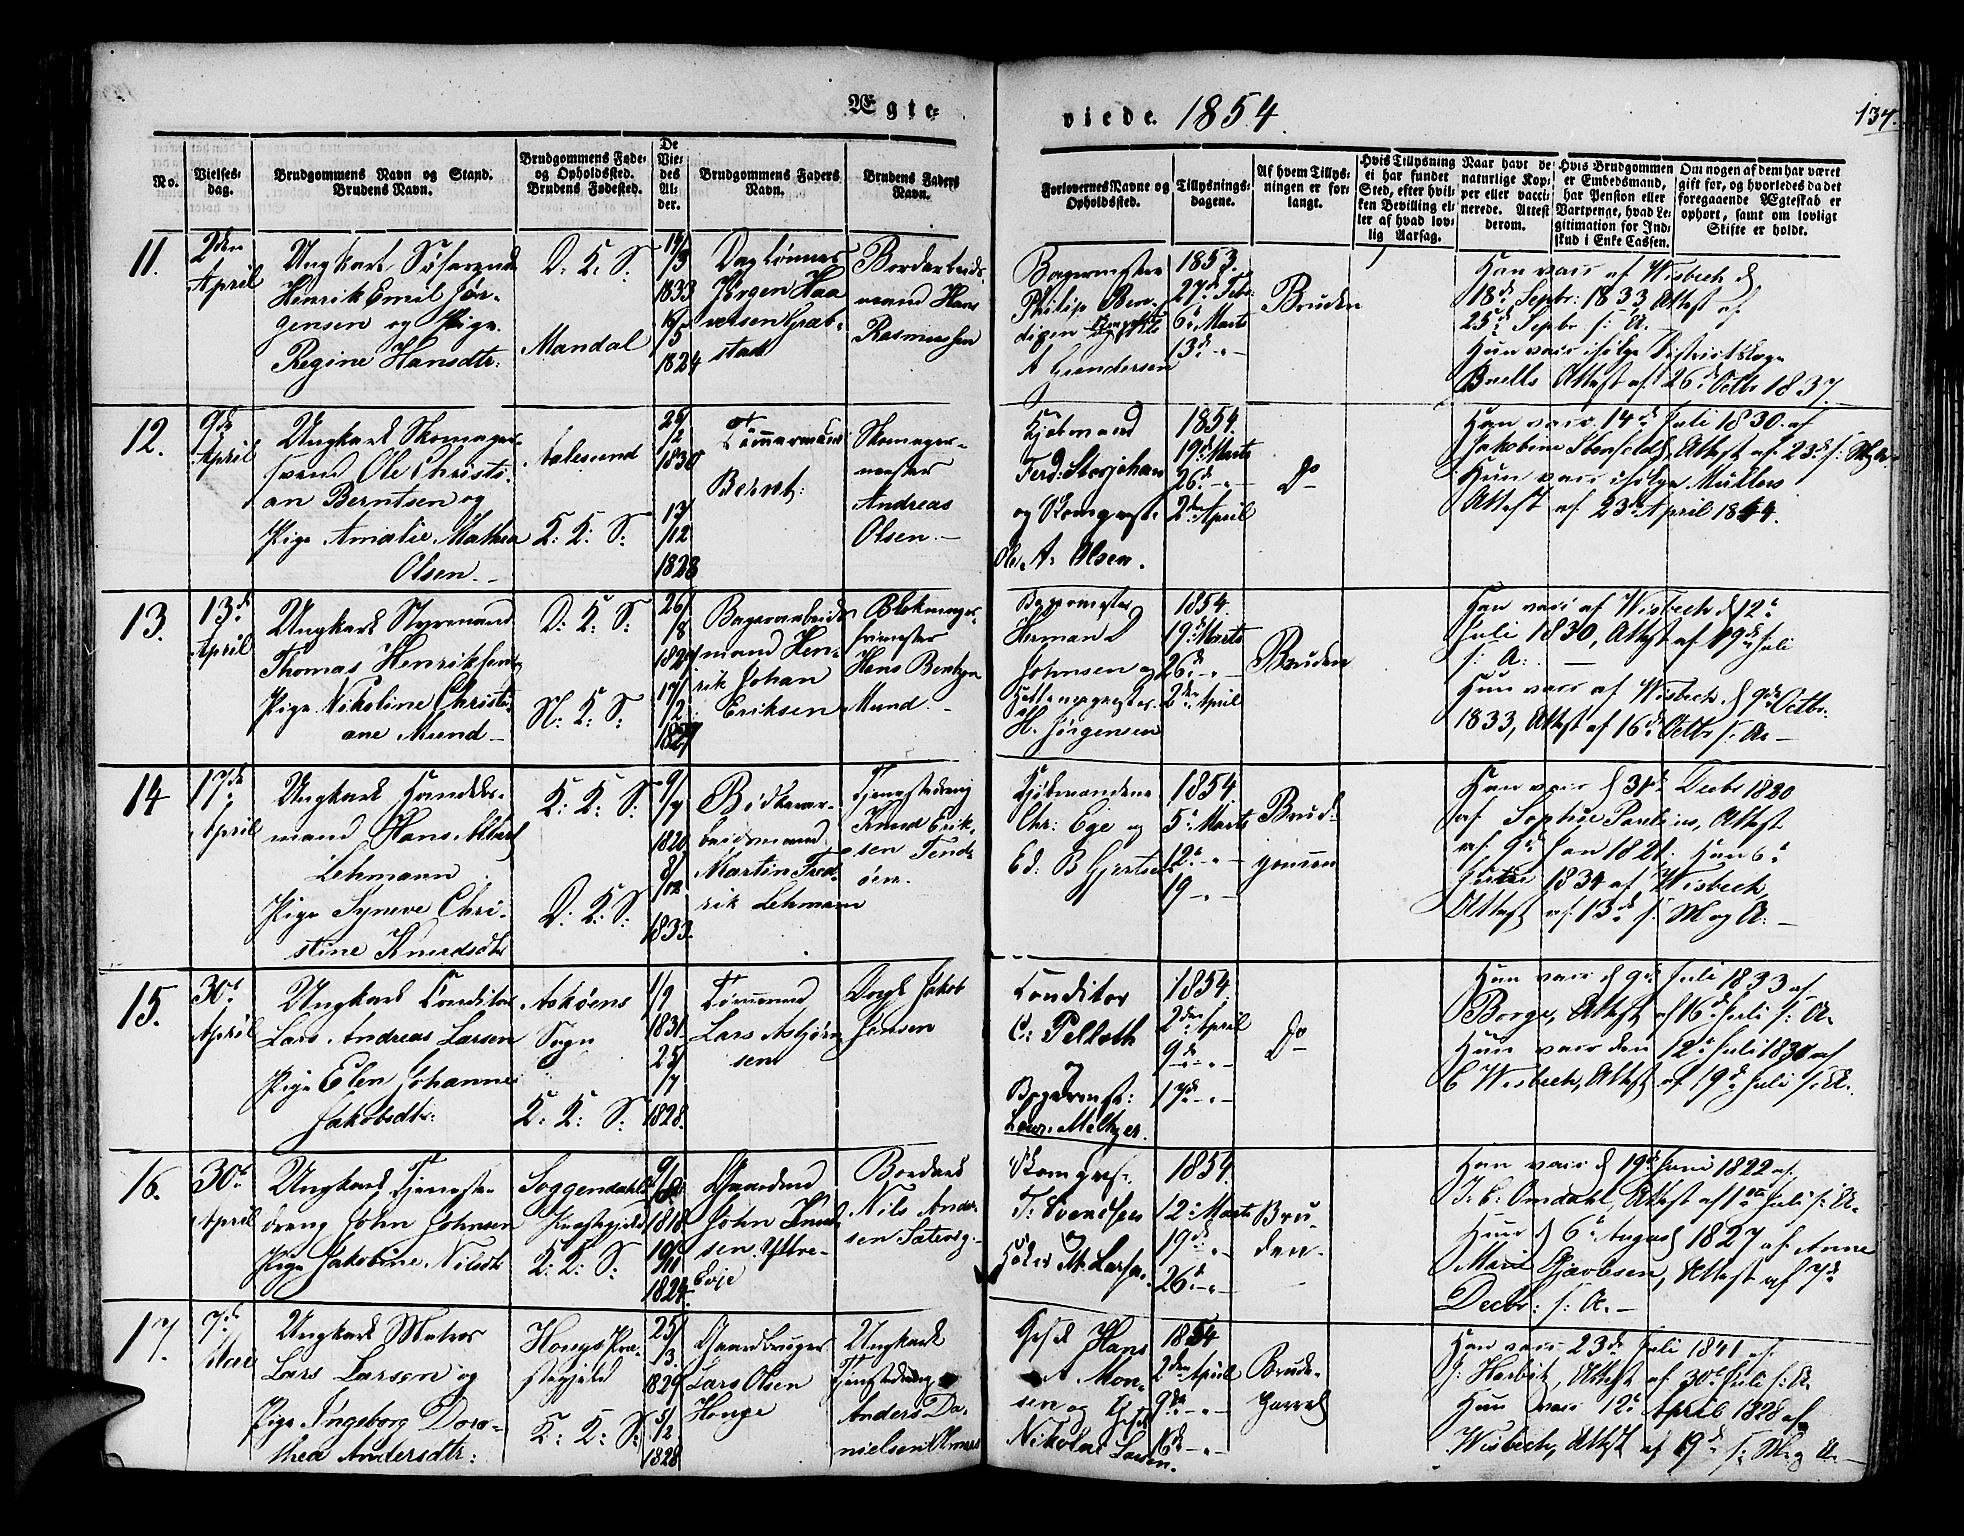 Ægte-
viede. 1854.
134.
No.
Vielses-
dag.
Brudgommens Navn og Stand.
Brudens Navn.
Brudgommens Føde-
og Opholdssted.
Brudens Fødested.
De
Vie-
des
Al-
der.
Brudgommens Faders
Navn.
Brudens Faders
Navn.
Forlovernes Navne og
Opholdssted.
Tillysnings-
dagene.
Af hvem Tillys-
ningen er for-
langt.
Hvis Tillysning
ei har fundet
Sted, efter hvil-
ken Bevilling el-
ler af hvad lov-
lig Aarsag.
Naar havt de
naturlige Kop-
per eller vacci-
nerede. Attest
derom.
Hvis Brudgommen
er Embedsmand,
har Pension eller
Vartpenge, hvad Le-
gitimation for Ind-
skud i Enke Cassen.
Om nogen af dem har været
gift før, og hvorledes da det
foregaaende Ægteskab er
ophørt, samt om lovligt
Skifte er holdt.
11.
2den
April
Ungkarl Søfarende
Hinrik Emil Jør-
gensen og Pige
Regine Hansdtr:
D: K: S:
Mandal
19/
/3
1833
/5
1824
Daglønner
Jørgen Haa
versen Græb-
stad
Bordarbeids
mand Hans
Rasmussen
Bagermester
Philip Ben-
digen
A Gundersen
1853.
27de Febr
6te Marts
13de -"-
Bruden
Han vacc af Wisbech d
18de Septbr: 1833, Attest af
25de Septbr s: A.
Hun vacc ifølge Districtslæge
Buells Attest af 26de Octbr 1837.
12.
9de
April
Ungkarl Skomager-
svend Ole Christi-
an Berntsen og
Pige Amalie Mathea
Olsen.
Aalesund
K: K: S:
25/
/2
1830
13/
/12
1828
Tømmermand
Bernt:
Skomager-
mester
Andreas
Olsen.
Kjøbmand
Ferd: Storjohan
og Skomgrmst.
Ole A: Olsen.
1854.
19de Marts
26de -"-
2den April
Do
Han vacc. 14de Juli 1830 af
Jakobine Stenfeldt, Attest af 23de s: M
Hun vacc ifølge Müllers
Attest af 23de April 1844.
13.
13de
April
Ungkarl Styrmand
Thomas Henriksen
Pige Nikoline Christi-
ane Mund
D: K: S:
N: K: S:
26/
/8
1829
17/
/2
1827
Bagerarbeids
mand Hen-
rik Johan
Eriksen
Blokmager-
mester
Hans Bentzen
Mund.
Bagermester
Herman D
Johnsen og
H. Jørgensen
1854.
19de Marts
26de -"-
2den April
Bruden
Han vacc af Wisbech d 12te
Juli 1830, Attest af 19de Juli
s: A:
Hun vacc af Wisbech d 9de Octbr.
1833, Attest af 16de Octbr s: A.
14
17de
April
Ungkarl Handels-
mand Hans Albert
Lehmann
Pige Syneve Chri-
stine Knudsdtr
K: K: S:
D: K: S:
9/
/7
1820
8/
/12
1833.
Bødkerar-
beidsmand
Martin Fred-
rik Lehmann
Tjenestedreng
Knud Erik-
sen Tend-
øen.
Kjøbmændene
Chr: Ege og
Ed. B Gjertsen
1854.
5te Marts
12te -"-
19 -"-
Brud-
gommen
Han vacc d 31te Decbr 1820
af Sophie Parelius, Attest
af 9de Jan 1821. Hun 6te
1834 af Wisbech,
Attest af 13de s: M og A:
15.
30te
April
Ungkarl Conditor
Lars Andreas Larsen
Pige Elen Johanne
Jakobsdtr:
Askøens
Sogn
K: K: S:
1/
/9
1831.
25/
/7
1828.
Tømmermand
Lars Asbjørn
sen
Dovk Jakob
Jensen
Conditor
C: Pelloth
og
Bagermst:
Laur. Meltzer.
1854
2den April
9de -"-
17de -"-
Do
Han vacc d 9de Juli 1833 af
Borge, Attest af 16de Juli s: A.
Hun vacc den 12te Juli 1830 af
C Wisbech, Attest af 19de Juli s: A.
16.
30te
April
Ungkarl Tjeneste-
dreng John Johnsen
Pige Jakobine Nilsdtr
Soggendahls
Præstegjeld
K: K: S:
9/
1818
19/
/11
1824
Gaardmd
John Knud
sen Yttre-
Evje
Bordarb
Nils Ander-
sen Sæterg.
Skomgrsv.
T: Svendsen
og
Høker M. Larsen.
1854.
12te Marts
19de -"-
26de -"-
Bru-
den
Han vacc d 19de Juni 1822 af
J. C: Omdahl, Attest af 1ste Juli s: A.
Hun d 6te August 1827 af Anne
Marie Gjæbsen, Attest af 7de
Decbr: s: A.
17.
7de
Mai
Ungkarl Matros
Lars Larsen og
Pige Ingeborg Doro-
thea Andersdtr:
Hougs Præ-
stegjeld
K: K: S:
25/
/3.
1829
5/
/2
1828
Gaardbruger
Lars Olsen
Houge
Ungkarl
Tjenstedreng
Anders Da-
nielsen Almaas
Hans
A Mon-
sen og
Nikolai Larsen.
1854
2den April
9de -"-
16de -"-
Brude-
parret
Han vacc 23de Juli 1841 af
J. Harbitz, Attest af 30te Juli s: A
Hun vacc 12te April 1828 af
Wisbech, Attest af 19de s: M og A.